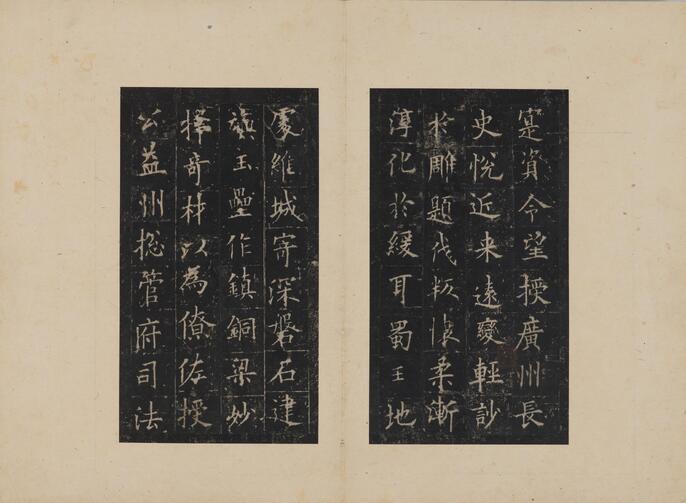 寔資令望授廣州長
史悅近来遠變輕訬
於雕題伐叛懷柔漸
淳化於緩耳蜀王地
處維城寄深磐石建
旟玉壘作鎮銅梁妙
擇奇材以為僚佐授
公益州捴管府司法